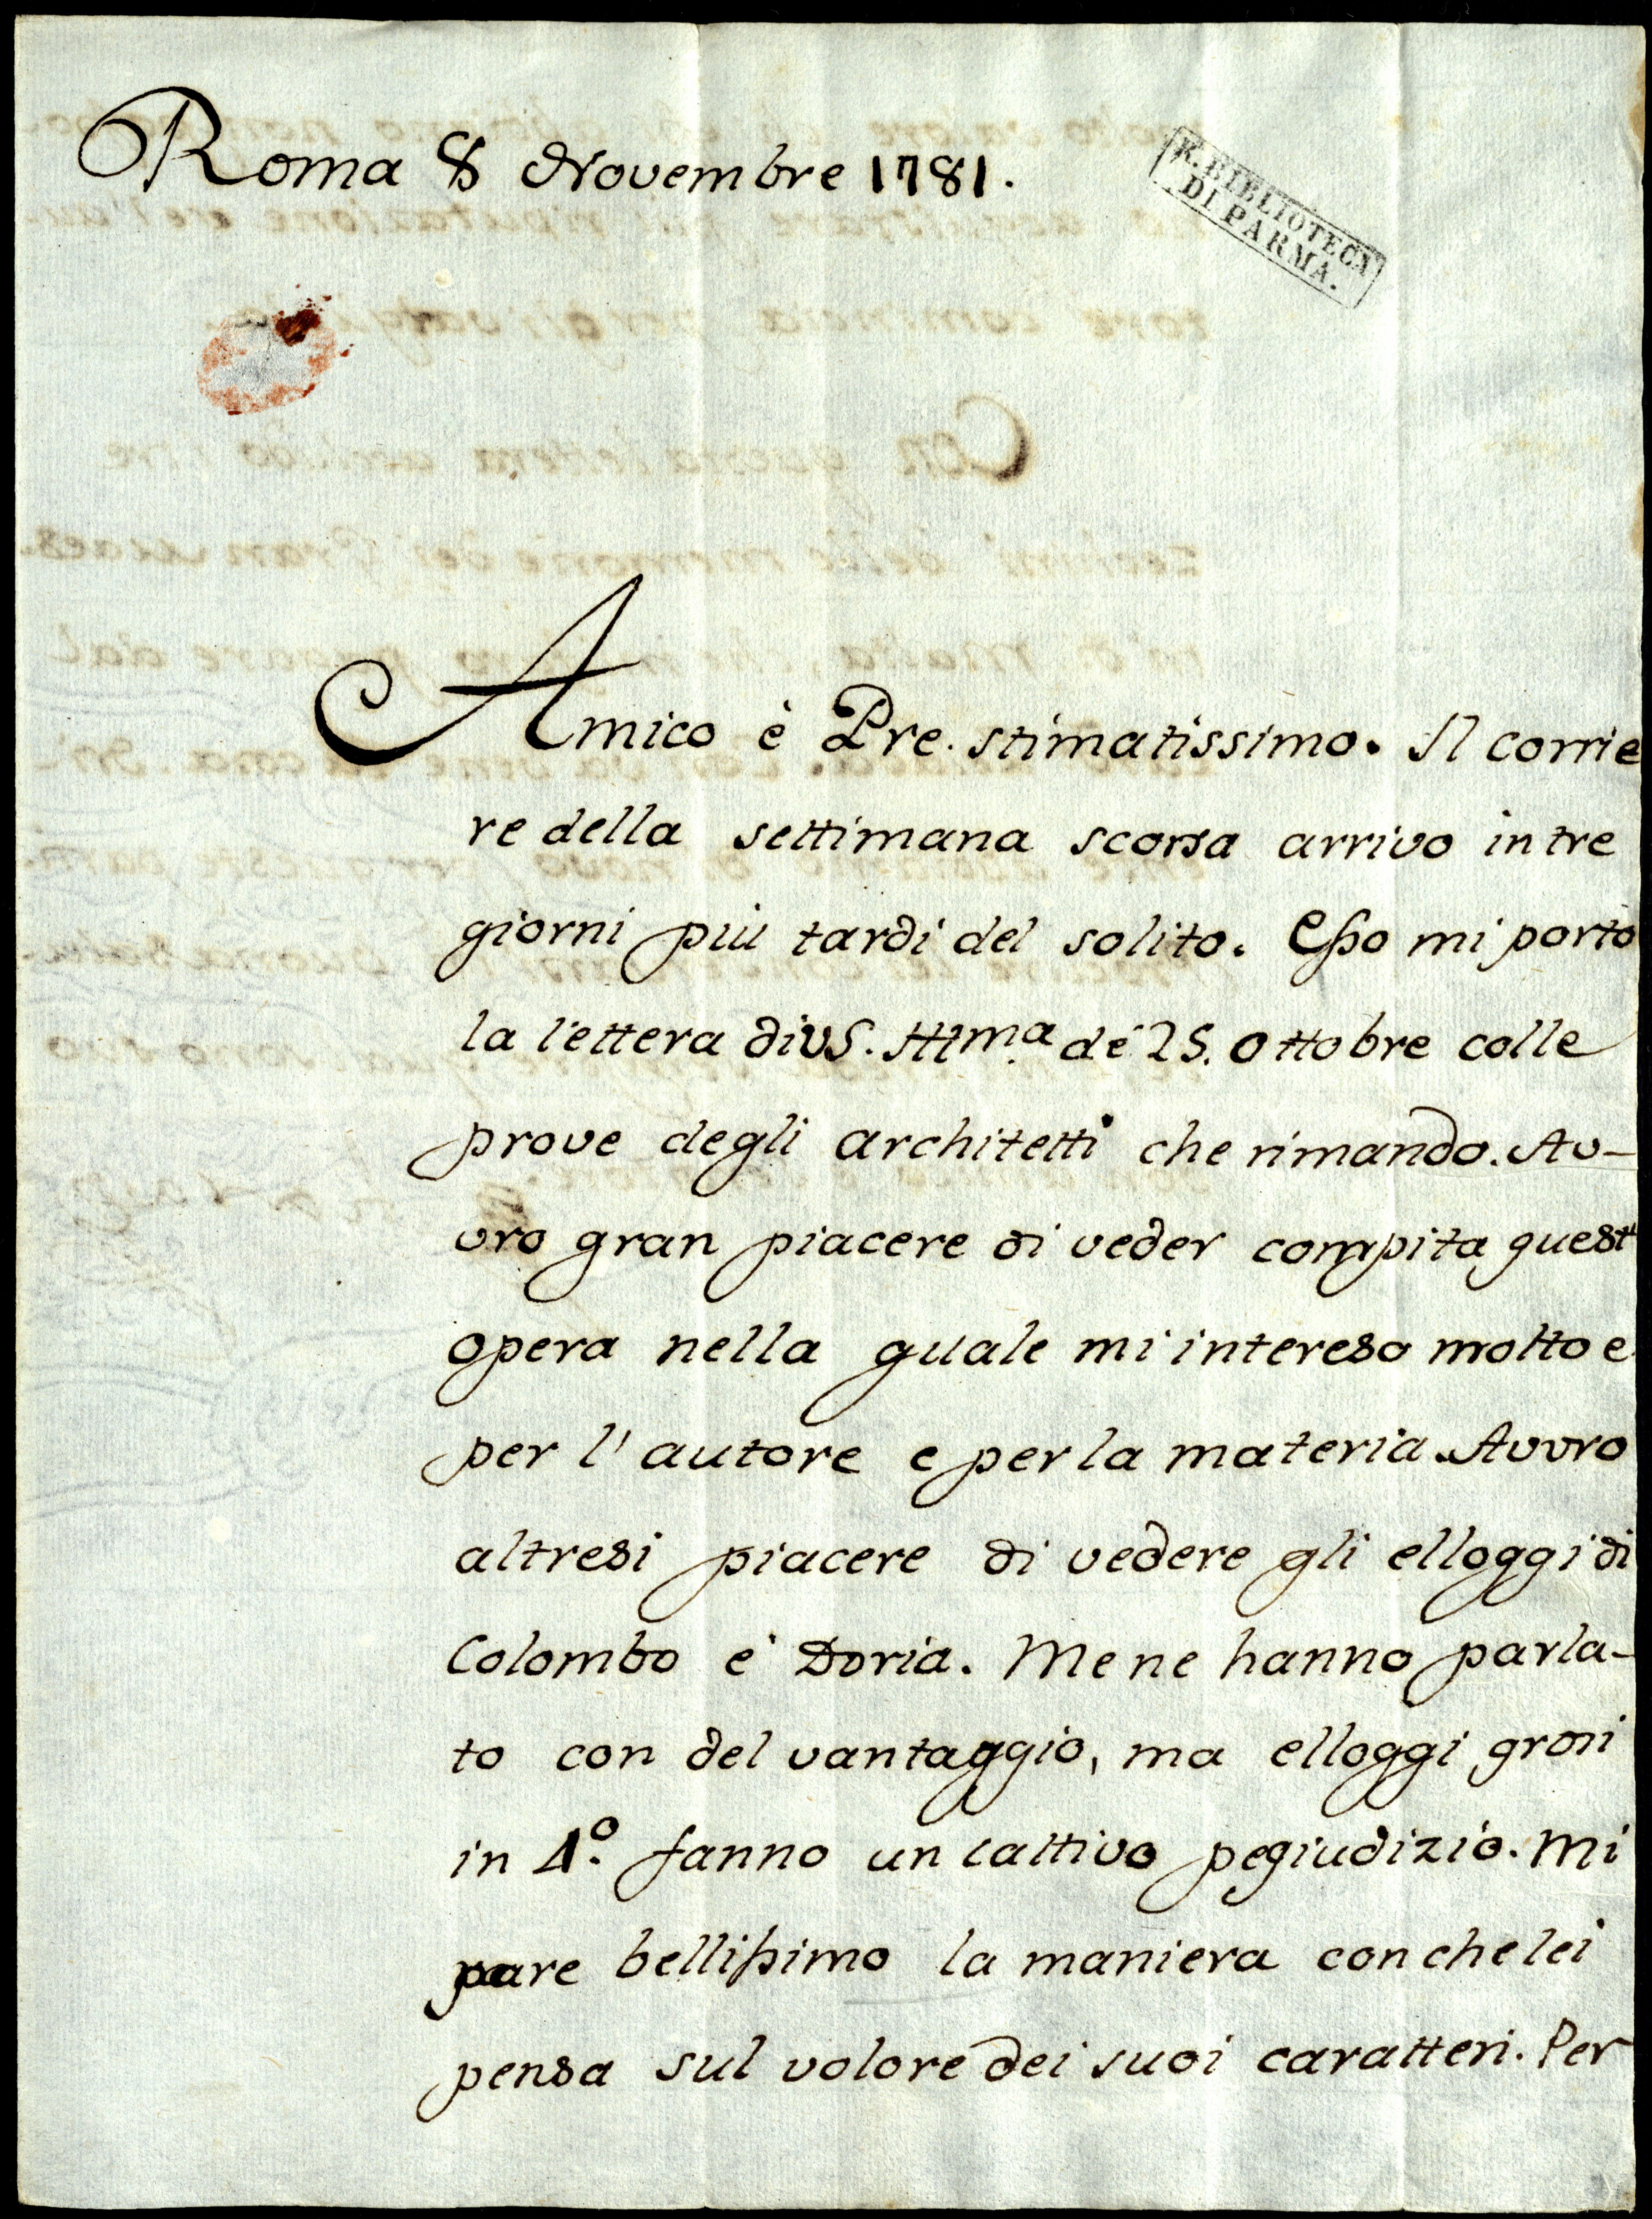 Roma 8 Novembre 1781.
R. BIBLIOTECA
DI PARMA.
Amico è Pre. stimatissimo. Il corrie
re della settimana scorsa arrivo in tre
giorni più tardi del solito. Esso mi porto
la lettera di VS. Illma. dé 25. Ottobre colle
prove degli architetti che rimando. Av-
vro gran piacere di veder compita quest'
opera nella quale mi intereso molto e
per l'autore e per la materia. Avvro
altresi piacere di vedere gli elloggi di
Colombo e' Doria. Me ne hanno parla-
to con del vantaggio, ma elloggi grosi
in 4o. fanno un cattivo pegiudizio. Mi
pare bellissimo la maniera con che lei
pensa sul volore dei suoi caratteri. Per